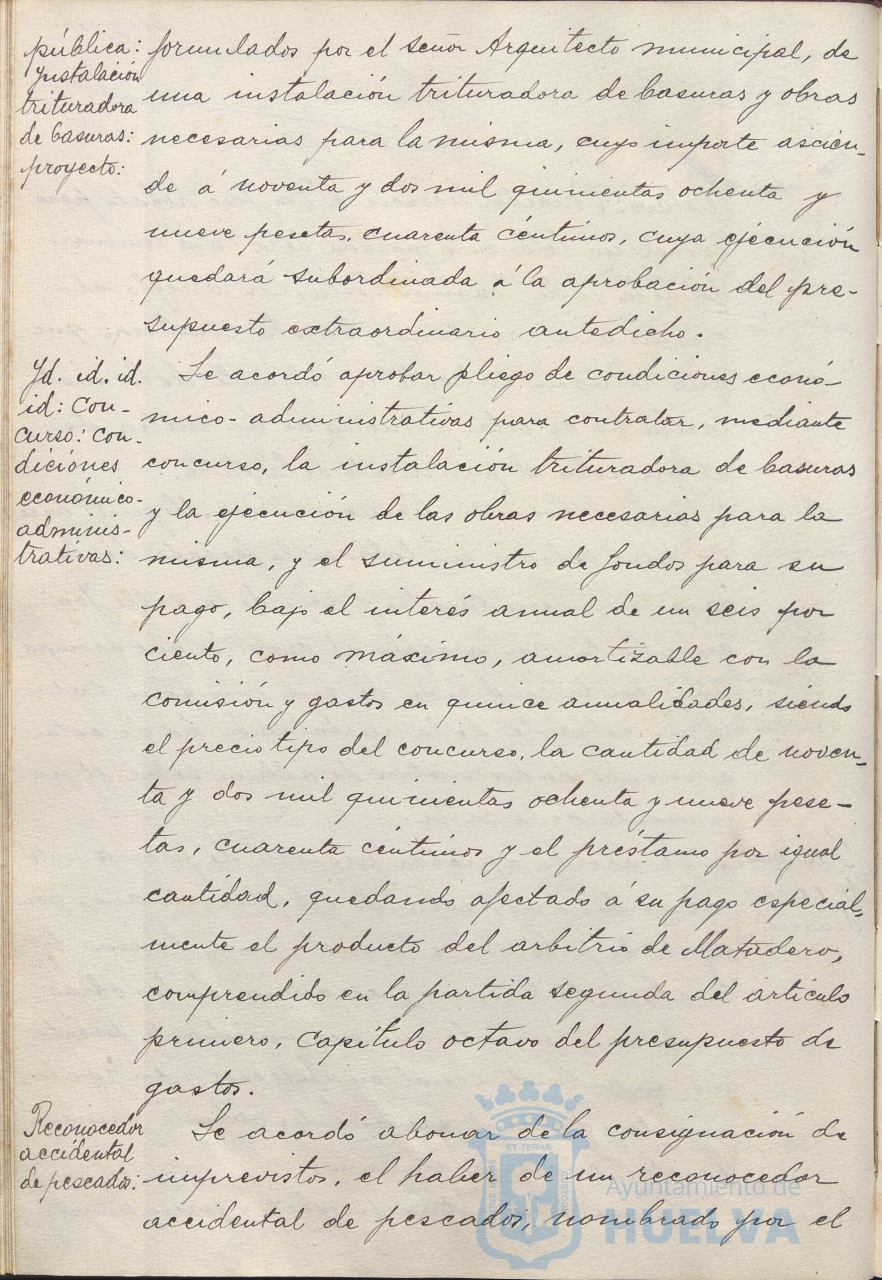 pública:
Ynstalación
trituradora
de basuras:
proyecto:
formulados por el señor Arquitecto municipal, de
una instalación trituradora de basuras y obras
necesarias para la misma, cuyo importe ascien-
de á noventa y dos mil quinientas ochenta y
nueve pesetas, cuarenta céntimos, cuya ejecución
quedará subordinada á la aprobación del pre-
supuesto extraordinario antedicho.
Yd. id. id.
id: Con-
curso: con-
diciones
económico-
adminis-
trativas:
Se acordó aprobar pliego de condiciones econó-
mico-administrativas para contratar, mediante
concurso, la instalación trituradora de basuras
y la ejecución de las obras necesarias para la
misma, y el suministro de fondos para su
pago, bajo el interés anual de un seis por
ciento, como máximo, amortizable con la
comisión y gastos en quince anualidades, siendo
el precio tipo del concurso, la cantidad de noven-
ta y dos mil quinientas ochenta y nueve pese-
tas, cuarenta céntimos y el préstamo por igual
cantidad, quedando afectado á su pago especial-
mente el producto del arbitrio de Matadero,
comprendido en la partida segunda del artículo
primero, Capítulo octavo del presupuesto de
gastos.
Reconocedor
accidental
de pescados:
Se acordó abonar de la consignación de
imprevistos, el haber de un reconocedor
accidental de pescados, nombrado por el
ET TERRÆ
Ayuntamiento de
HUELVA